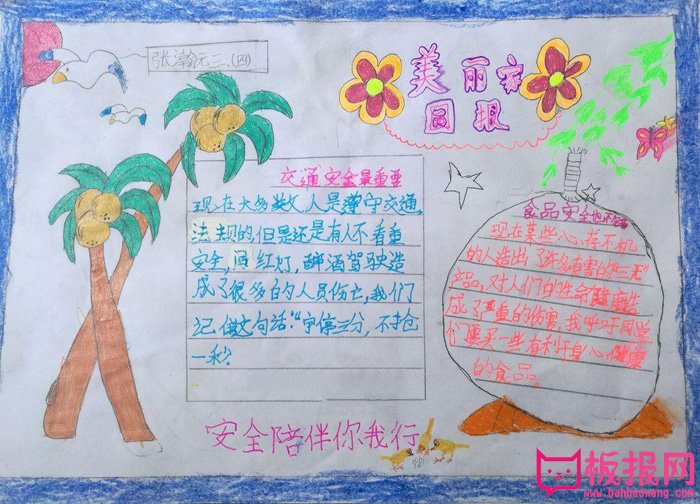 张瀚元三.(四)
美丽家
园报
交通安全最重要
现在大多数人是遵守交通
法规的,但是还是有人不看重
安全,闯红灯,醉酒驾驶造
成了很多的人员伤亡,我们
记住这句话:"宁停三分,不抢
一秒"
食品安全也不忘
现在某些人心存不机
的人造出了许多有害的"三无"
产品,对人们的生命健康造
成了严重的伤害,我呼吁同学
们要买一些有利于身心健康
的食品。
安全陪伴你我行
板报网
www.banbaowang.com